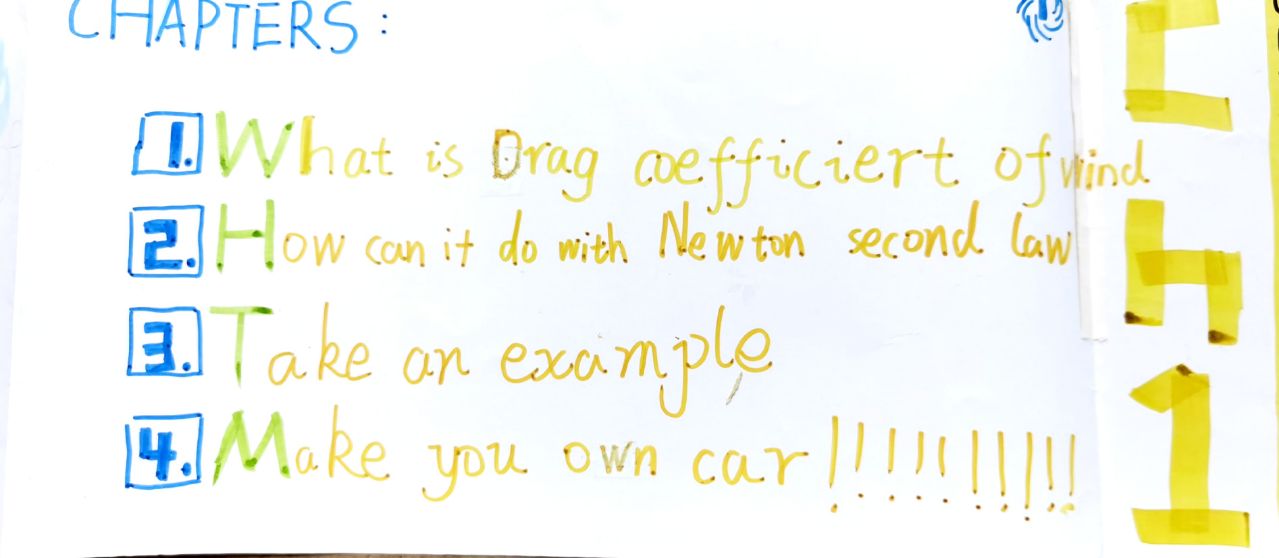 CHAPTERS:
1. What is Drag coefficiert of wind
2. How can it do with Newton second law
3. Take an example
4. Make you own car!!!!!!!!!!
Ch1